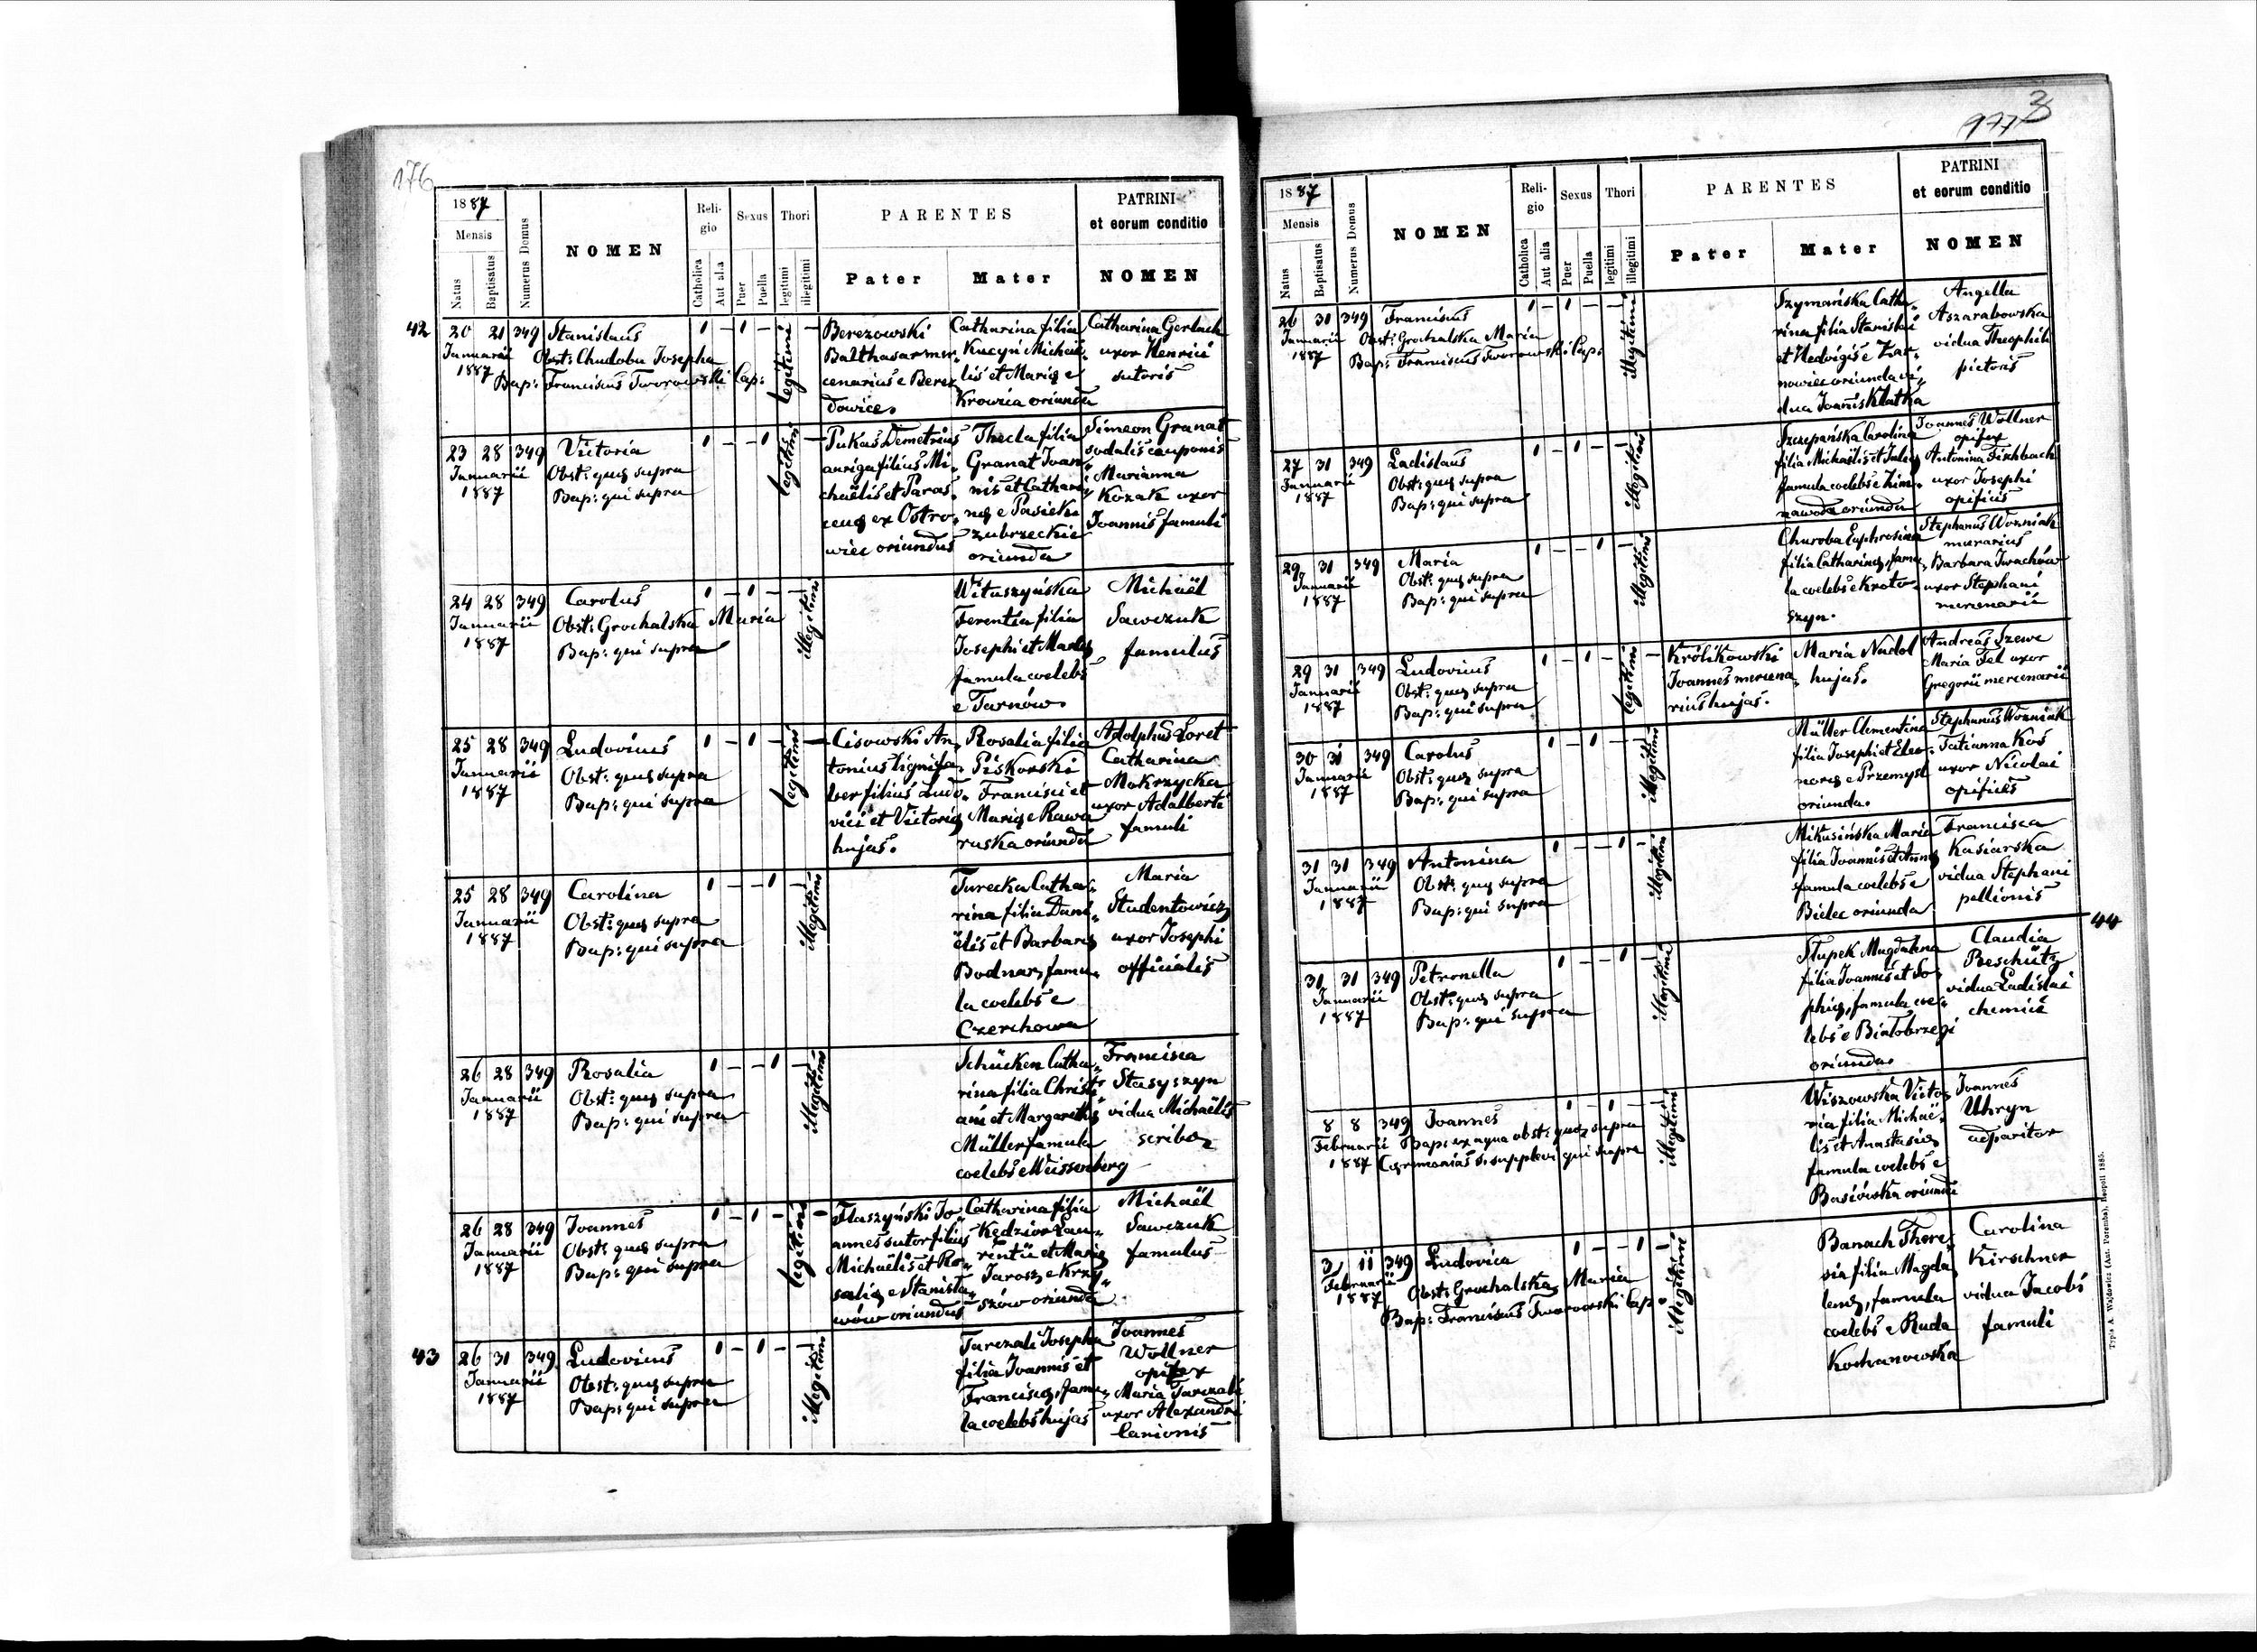 176
1887
Mensis
Natus
Baptisatus
Numerus Domus
NOMEN
Reli-
gio
Catholica
Aut alia
Sexus
Puer
Puella
Thori
legitimi
illegitimi
PARENTES
Pater
Mater
PATRINI
et eorum conditio
NOMEN
42
20 21 349 Stanislaus
Januarii
1887
Obst: Chudoba Josepha
Bap: Franciscus Tworowski Cap:
1 – 1 – legitimi –
Berezowski
Balthasar mer,
cenarius e Berez
dowice.
Catharina filia
Kucyń Michaë,
lis et Mariæ e
Krowica oriunda
Catharina Gerlach
uxor Henrici
sutoris
23 28 349 Victoria
Januarii
1887
Obst: quæ supra
Bap: qui supra
1 – – 1 legitimi –
Pukas Demetrius
auriga filius Mi,
chaëlis et Paras,
ceuæ ex Ostro,
wiec oriundus
Thecla filia
Granat Joan,
nis etAthari,
næ e Pasieki
zubrzeckie
oriunda
Simeon Granat
sodalis cauponis
Marianna
Kozak uxor
Joannis famuli
24 28 349 Carolus
Januarii
1887
Obst: Grochalska Maria
Bap: qui supra
1 – 1 – – illegitimi
Wituszyńska
Terentia filia
Josephi et
famula coelebs
e Tarnów.
Michaël
Sawczuk
famulus
25 28 349 Ludovicus
Januarii
1887
Obst: quæ supra
Bap: qui supra
1 – 1 – legitimi –
Cisowski An,
tonius lignifa,
ber filius Ludo,
vici et Victoriæ
hujas.
Rosalia filia
Piskorski
Francisci et
Mariæ e Rawa
ruska oriunda
Adolphus Loret
Catharina
Mokrzycka
uxor Adalberti
famuli
25 28 349 Carolina
Januarii
1887
Obst: quæ supra
Bap: qui supra
1 – – 1 – illegitimi
Turecka Catha,
rina filia Dani,
ëlis et Barbaræ
Bodnar, famu,
la coelebs e
Czerchowa
Maria
Studentowicz
uxor Josephi
officialis
26 28 349 Rosalia
Januarii
1887
Obst: quæ supra
Bap: qui supra
1 – – 1 – illegitimi
Schücken Catha,
rina filia Christi,
ani et Margarethæ
Müller famula
coelebs e Weissenberg
Francisca
Stasyszyn
vidua Michaëlis
scribæ
26 28 349 Joannes
Januarii
1887
Obst: quæ supra
Bap: qui supra
1 – 1 – legitimi –
Flaszyński Jo,
annes sutor filius
Michaëlis et Ro,
saliæ e Stanisła,
wów oriundus
Catharina filia
Kędzior Lau,
rentii et Mariæ
Jarosz e Krzy,
szów oriunda
Michaël
Sawczuk
famulus
43
26 31 349 Ludovicus
Januarii
1887
Obst: quæ supra
Bap: qui supra
1 – 1 – – illegitimi
Tarczali Josepha
filia Joannis et
Franciscæ, famu,
la coelebs hujas
Joannes
Wollner
opifex
Maria Tarczali
uxor Alexandri
lanionis
177
3
1887
Mensis
Natus
Baptisatus
Numerus Domus
NOMEN
Reli-
gio
Catholica
Aut alia
Sexus
Puer
Puella
Thori
legitimi
illegitimi
PARENTES
Pater
Mater
PATRINI
et eorum conditio
NOMEN
26 31 349 Franciscus
Januarii
1887
Obst: Grochalska Maria
Bap: Franciscus Tworowski Cap:
1 – 1 – – illegitimi
Szymańska Catha,
rina filia Stanislai
et Hedvigis e Żar,
nowiec oriunda vi,
dua Joannis Klatka
Angella
Aszarabowska
vidua Theophili
pictoris
27 31 349 Ladislaus
Januarii
1887
Obst: quæ supra
Bap: qui supra
1 – 1 – – illegitimi
Szczepańska Carolina
filia Michaëlis et Juliæ
famula coelebs e Zim,
nawoda oriunda
Joannes Wollner
opifex
Antonina Fischbach
uxor Josephi
opificis
29 31 349 Maria
Januarii
1887
Obst: quæ supra
Bap: qui supra
1 – – 1 – illegitimi
Churoba Euphrosina
filia Catharinæ, famu,
la coelebs e Kroto,
szyn.
Stephanus Wozniak
murarius
Barbara Iwachów
uxor Stephani
mercenarii
29 31 349 Ludovicus
Januarii
1887
Obst: quæ supra
Bap: qui supra
1 – 1 – legitimi –
Królikowski
Joannes mercena,
rius hujas.
Maria Nadol
hujas.
Andreas Szewc
Maria Fel uxor
Gregorii mercenarii
30 31 349 Carolus
Januarii
1887
Obst: quæ supra
Bap: qui supra
1 – 1 – – illegitimi
Müller Clementina
filia Josephi et Eleo,
noræ e Przemysl
oriunda.
Stephanus Wozniak
Tatianna Kos
uxor Nicolai
opificis
31 31 349 Antonina
Januarii
1887
Obst: quæ supra
Bap: qui supra
1 – – 1 – illegitimi
Mikusińska Maria
filia Joannis et Annæ
famula coelebs e
Bielec oriunda
Francisca
Kasiarska
vidua Stephani
pellionis
44
31 31 349 Petronella
Januarii
1887
Obst: quæ supra
Bap: qui supra
1 – – 1 – illegitimi
Słupek Magdalena
filia Joannis et So,
phiæ, famula coe,
lebs e Białobrzegi
oriunda
Claudia
Beschütz
vidua Ladislai
chemici
8 8 349 Joannes
Februarii
1887
Bap: ex aqua obst: quæ supra
Cærimonias s. supplevi qui supra
1 – 1 – – illegitimi
Wiszowska Victo,
ria filia Michaë,
lis et Anastasiæ
famula coelebs e
Basiówska oriunda
Joannes
Uhryn
adparitor
3 11 349 Ludovica
Februarii
1887
Obst: Grochalska Maria
Bap: Franciscus Tworowski Cap.
1 – – 1 – illegitimi
Banach There,
sia filia Magda,
lenæ, famula
coelebs e Ruda
Kochanowska
Carolina
Kirschner
vidua Jacobi
famuli
Typis A. Wajdowicz (Ant. Poremba), Leopoli 1885.